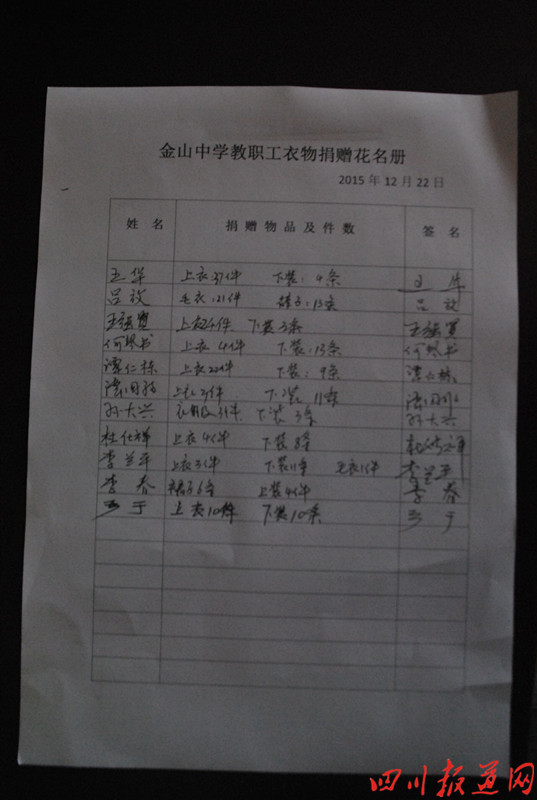 金山中学教职工衣物捐赠花名册
2015年12月22日
姓 名 捐赠物品及件数 签 名
王华 上衣:37件 下装:4条 王华
吕 毛衣:21件 裤子:13条 吕
王 上衣24件 下装3条 王
何 上衣4件 下装:13条 何
谭仁栋 上衣22件 下装:9条 谭仁栋
上衣21件 下装11条
孙大兴 3件 下装3条 孙大兴
杜仕祥 上衣4件 下装8条 杜仕祥
李兰平 上衣3件 下装11条 毛衣1件 李兰平
李春 裙子6条 上装4件 李春
于 上衣10件 下装10条 于
四川报道网